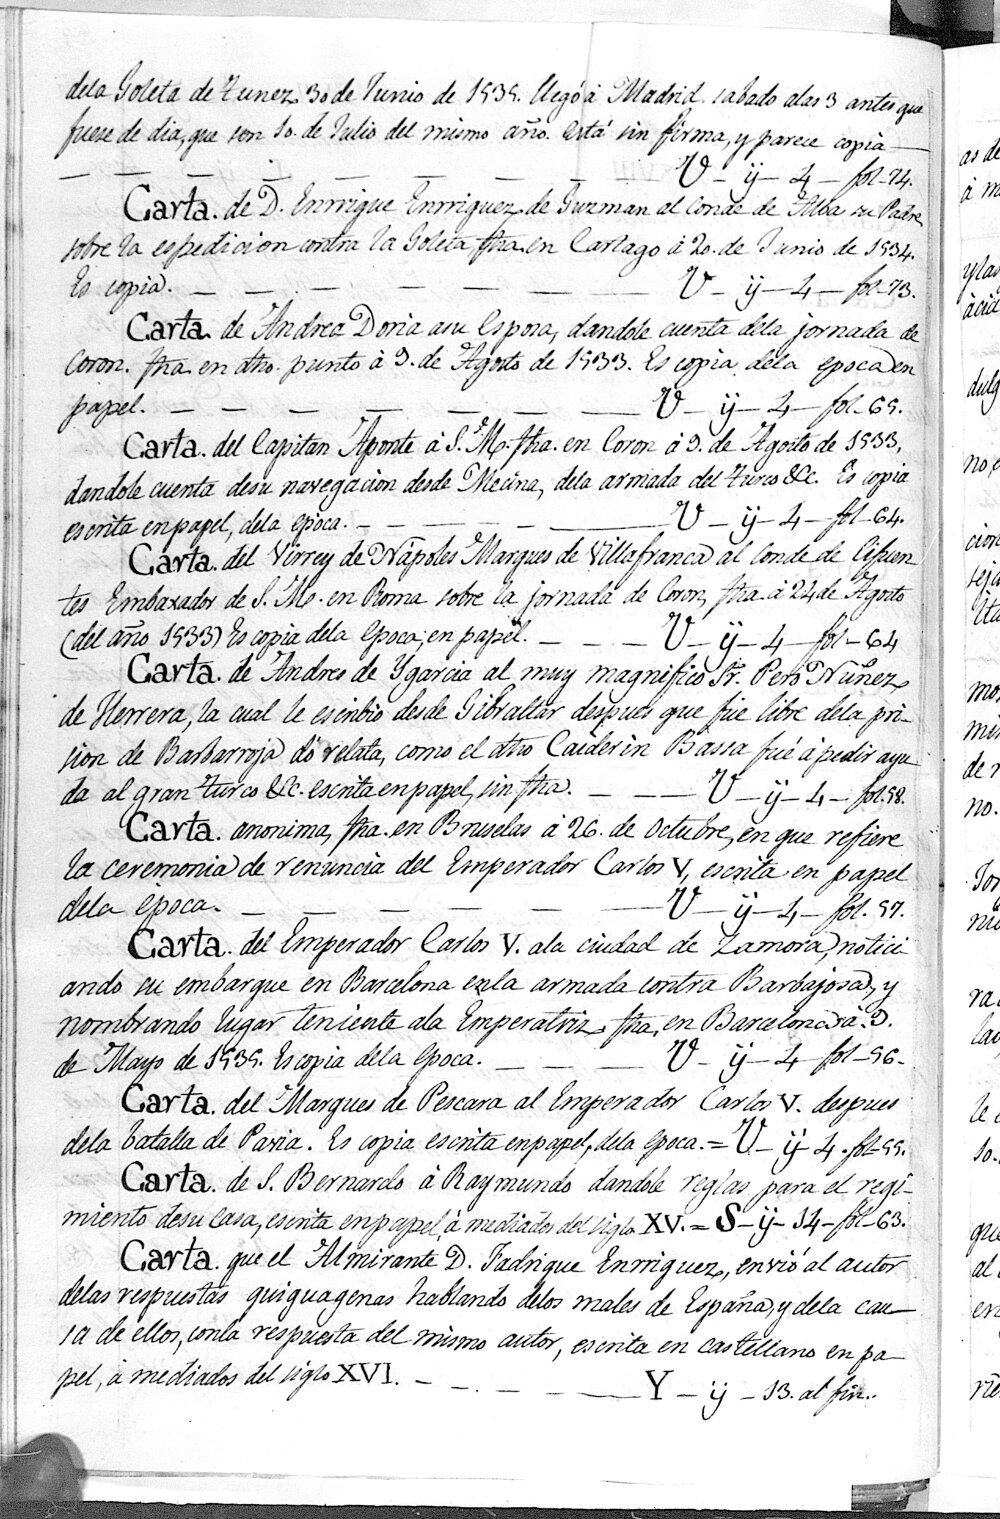 dela Goleta de Tunez 30 de Junio de 1535. llegó à Madrid. sabado alas 3 antes que
fuese de dia, que son 10. de Julio del mismo año. está sin firma, y parece copia —
— — — — — — — V – ij – 4 – fol – 74.
Carta. de D. Enrrique Enrriquez de Guzman al Conde de Alba su Padre
sobre la espedicion contra la Goleta fha. en Cartago à 20. de Junio de 1534.
Es copia. — — — — — — — V – ij – 4 – fol – 73.
Carta. de Andrea Doria asu Esposa, dandole cuenta dela jornada de
Coron. fha. en dho. punto à 9. de Agosto de 1533. Es copia dela epoca en
papel. — — — — — — V – ij – 4 – fol – 65.
Carta. del Capitan Aponte à S. M. fha. en Coron à 9. de Agosto de 1533,
dandole cuenta desu navegacion desde Mecina, dela armada del Turco &c. Es copia
escrita en papel, dela epoca. — — — — — V – ij – 4 – fol – 64.
Carta. del Virrey de Nàpoles Marques de Villafranca al Conde de Cifuen
tes Embaxador de S. M. en Roma sobre la jornada de Coron, fha. à 24 de Agosto
(del año 1533) Es copia dela epoca, en papel. — — — V – ij – 4 – fol – 64
Carta. de Andres de Ygarcia al muy magnifico Sr. Pero Nuñez
de Herrera, la cual le escribio desde Gibraltar despues que fue libre dela pri-
sion de Barbarroja dó relata, como el dho Caiderin Bassa fué à pedir ayu
da al gran turco &c. escrita en papel, sin fha. — — — V – ij – 4 – fol. 58.
Carta. anonima, fha. en Bruselas à 26. de Octubre, en que refiere
la ceremonia de renuncia del Emperador Carlos V, escrita en papel
dela época. — — — — — — V – ij – 4 – fol. 57.
Carta. del Emperador Carlos V. ala ciudad de Zamora, notici
ando su embarque en Barcelona enla armada contra Barbajosa, y
nombrando lugar teniente ala Emperatriz fha, en Barcelona à. 9.
de Mayo de 1535. Es copia dela epoca. — — — V – ij – 4 – fol – 56 –
Carta. del Marques de Pescara al Emperador Carlos V. despues
dela batalla de Pavia. Es copia escrita en papel, dela epoca. = V – ij – 4 . fol – 55.
Carta. de S. Bernardo à Raymundo dandole reglas para el regi-
miento desu casa, escrita en papel à mediados del siglo XV. = S – ij – 14 – fol – 63.
Carta. que el Almirante D. Fadrique Enrriquez, envió al autor
delas respuestas quiquagenas hablando delos males de España, y dela cau —
sa de ellos, conla respuesta del mismo autor, escrita en castellano en pa —
pel, à mediados del siglo XVI. — — — — — Y – ij – 13. al fin.